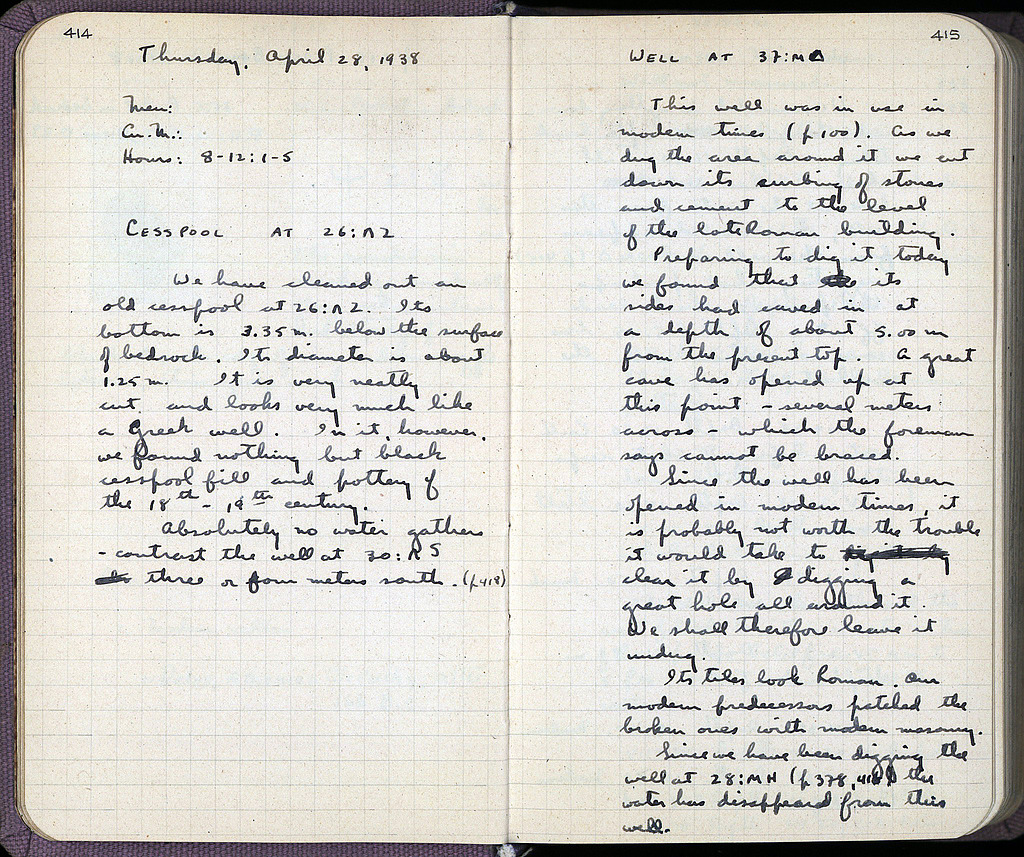 414
Thursday, April 28, 1938
Men:
Cu. M.:
Hours: 8-12:1-5
CESSPOOL AT 26:ΛΖ
We have cleaned out an
old cesspool at 26:ΛΖ. Its
bottom is 3.35 m. below the surface
of bedrock. Its diameter is about
1.25 m. It is very neatly
cut, and looks very much like
a Greek well. In it, however,
we found nothing but black
cesspool fill and pottery of
the 18th - 19th century.
Absolutely no water gathers
- contrast the well at 30:
three or four meters south. (p.418)
415
WELL AT 37:ΜΔ
This well was in use in
modern times (p 100). As we
dug the area around it we cut
down its curbing of stones
and cement to the level
of the late Roman building.
Preparing to dig it today
we found that its
sides had caved in at
a depth of about 5.00 m
from the present top. A great
cave has opened up at
this point - several meters
across - which the foreman
says cannot be braced.
Since the well has been
opened in modern times, it
is probably not worth the trouble
it would take to
clear it by digging a
great hole all around it.
We shall therefore leave it
undug.
Its tiles look Roman. Our
modern predecessors patched the
broken ones with modern masonry.
Since we have been digging the
well at 28:ΜΗ (p 378, ) the
water has disappeard from this
well.